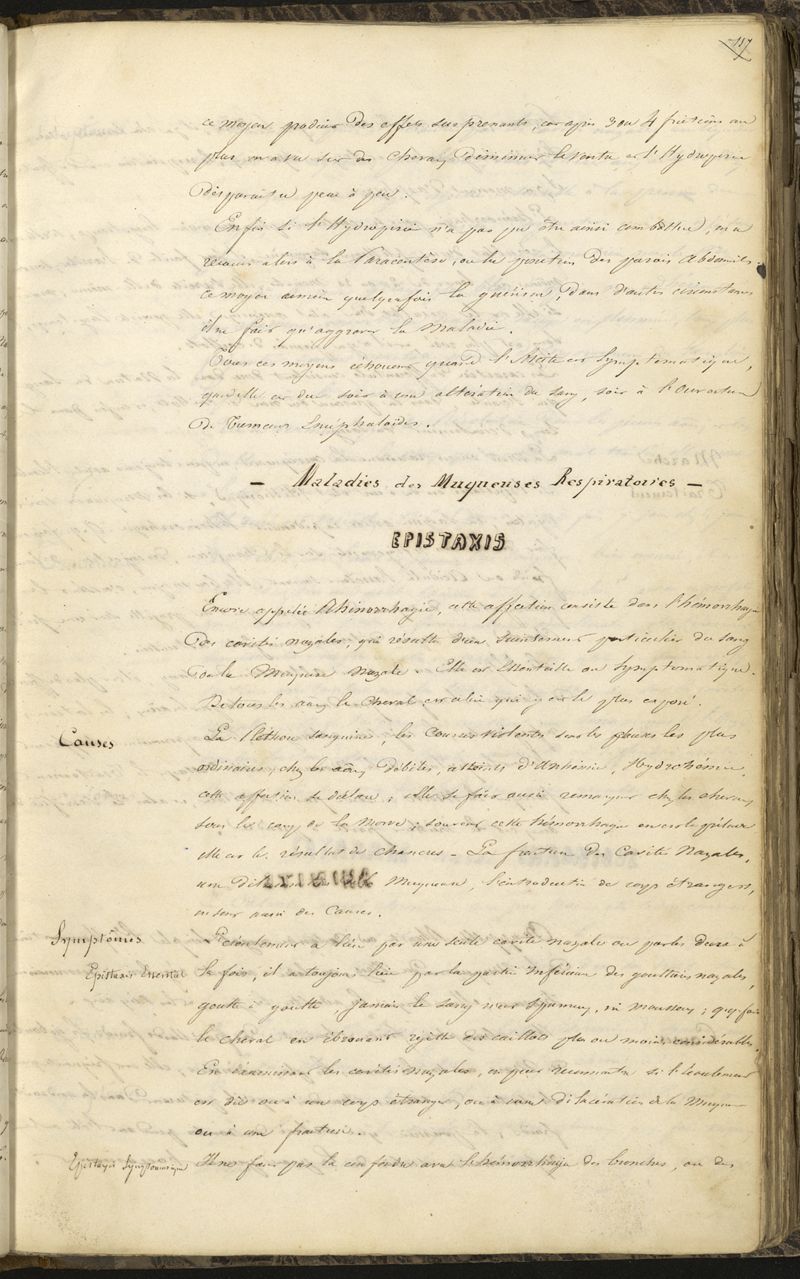 117
ce moyen produit des effets surprenants, car après 3 ou 4 frictions au
plus on a vu sur des chevaux diminuer le ventre et l'Hydropisie
disparaitre peu à peu.
Enfin si l'Hydropisie n'a pas pu être ainsi combattue, on a
recours alors à la Paracentèse, ou la ponction des parois Abdomin.
ce moyen amène quelquefois la guérison, dans d'autres circonstances
il ne fait qu'aggraver la maladie.
Tous ces moyens échouent quand l'Ascite est Symptomatique,
qu'elle est due soit à une altération du sang, soit à l'ouverture
de Tumeurs Encéphaloïdes.
— Maladies des Muqueuses Respiratoires —
EPISTAXIS
Encore appelée Rhinorrhagie, cette affection consiste dans l'hémorrhagie
des cavités nazales, qui résulte d'un suintement particulier du sang
de la Muqueuse Nazale. Elle est Essentielle ou Symptomatique.
De tous les anx le cheval est celui qui y est le plus exposé.
Causes
La Pléthore sanguine, les courses violentes sont les causes les plus
ordinaires; chez les anx débiles, atteints d'Anhémie, Hydrohémie,
cette affection se déclare; elle se fait aussi remarquer chez les chevaux
sous le coup de la Morve; souvent cette hémorrhagie
elle est le résultat de chancres – La fracture des Cavités Nazales,
une Muqueuse, l'introduction de corps étrangers,
en sont aussi des Causes.
Symptômes
L'écoulement a lieu par une seule cavité nazale ou par les deux à
Epistaxis Essentiel
la fois, il a toujours lieu par la partie inférieure des gouttières nazales,
goutte à goutte, jamais le sang n'est spumeux, ni mousseux; qqfois
le cheval en s'ébrouant rejette des caillots plus ou moins considérables.
En examinant les cavités nazales, on peut reconnaitre si l'écoulement
est dû ou à un corps étranger, ou à une dilacération de la Muqueuse
ou à une fracture.
Epistaxis Symptomatique
Il ne faut pas la confondre avec l'hémorrhagie des bronches, ou des